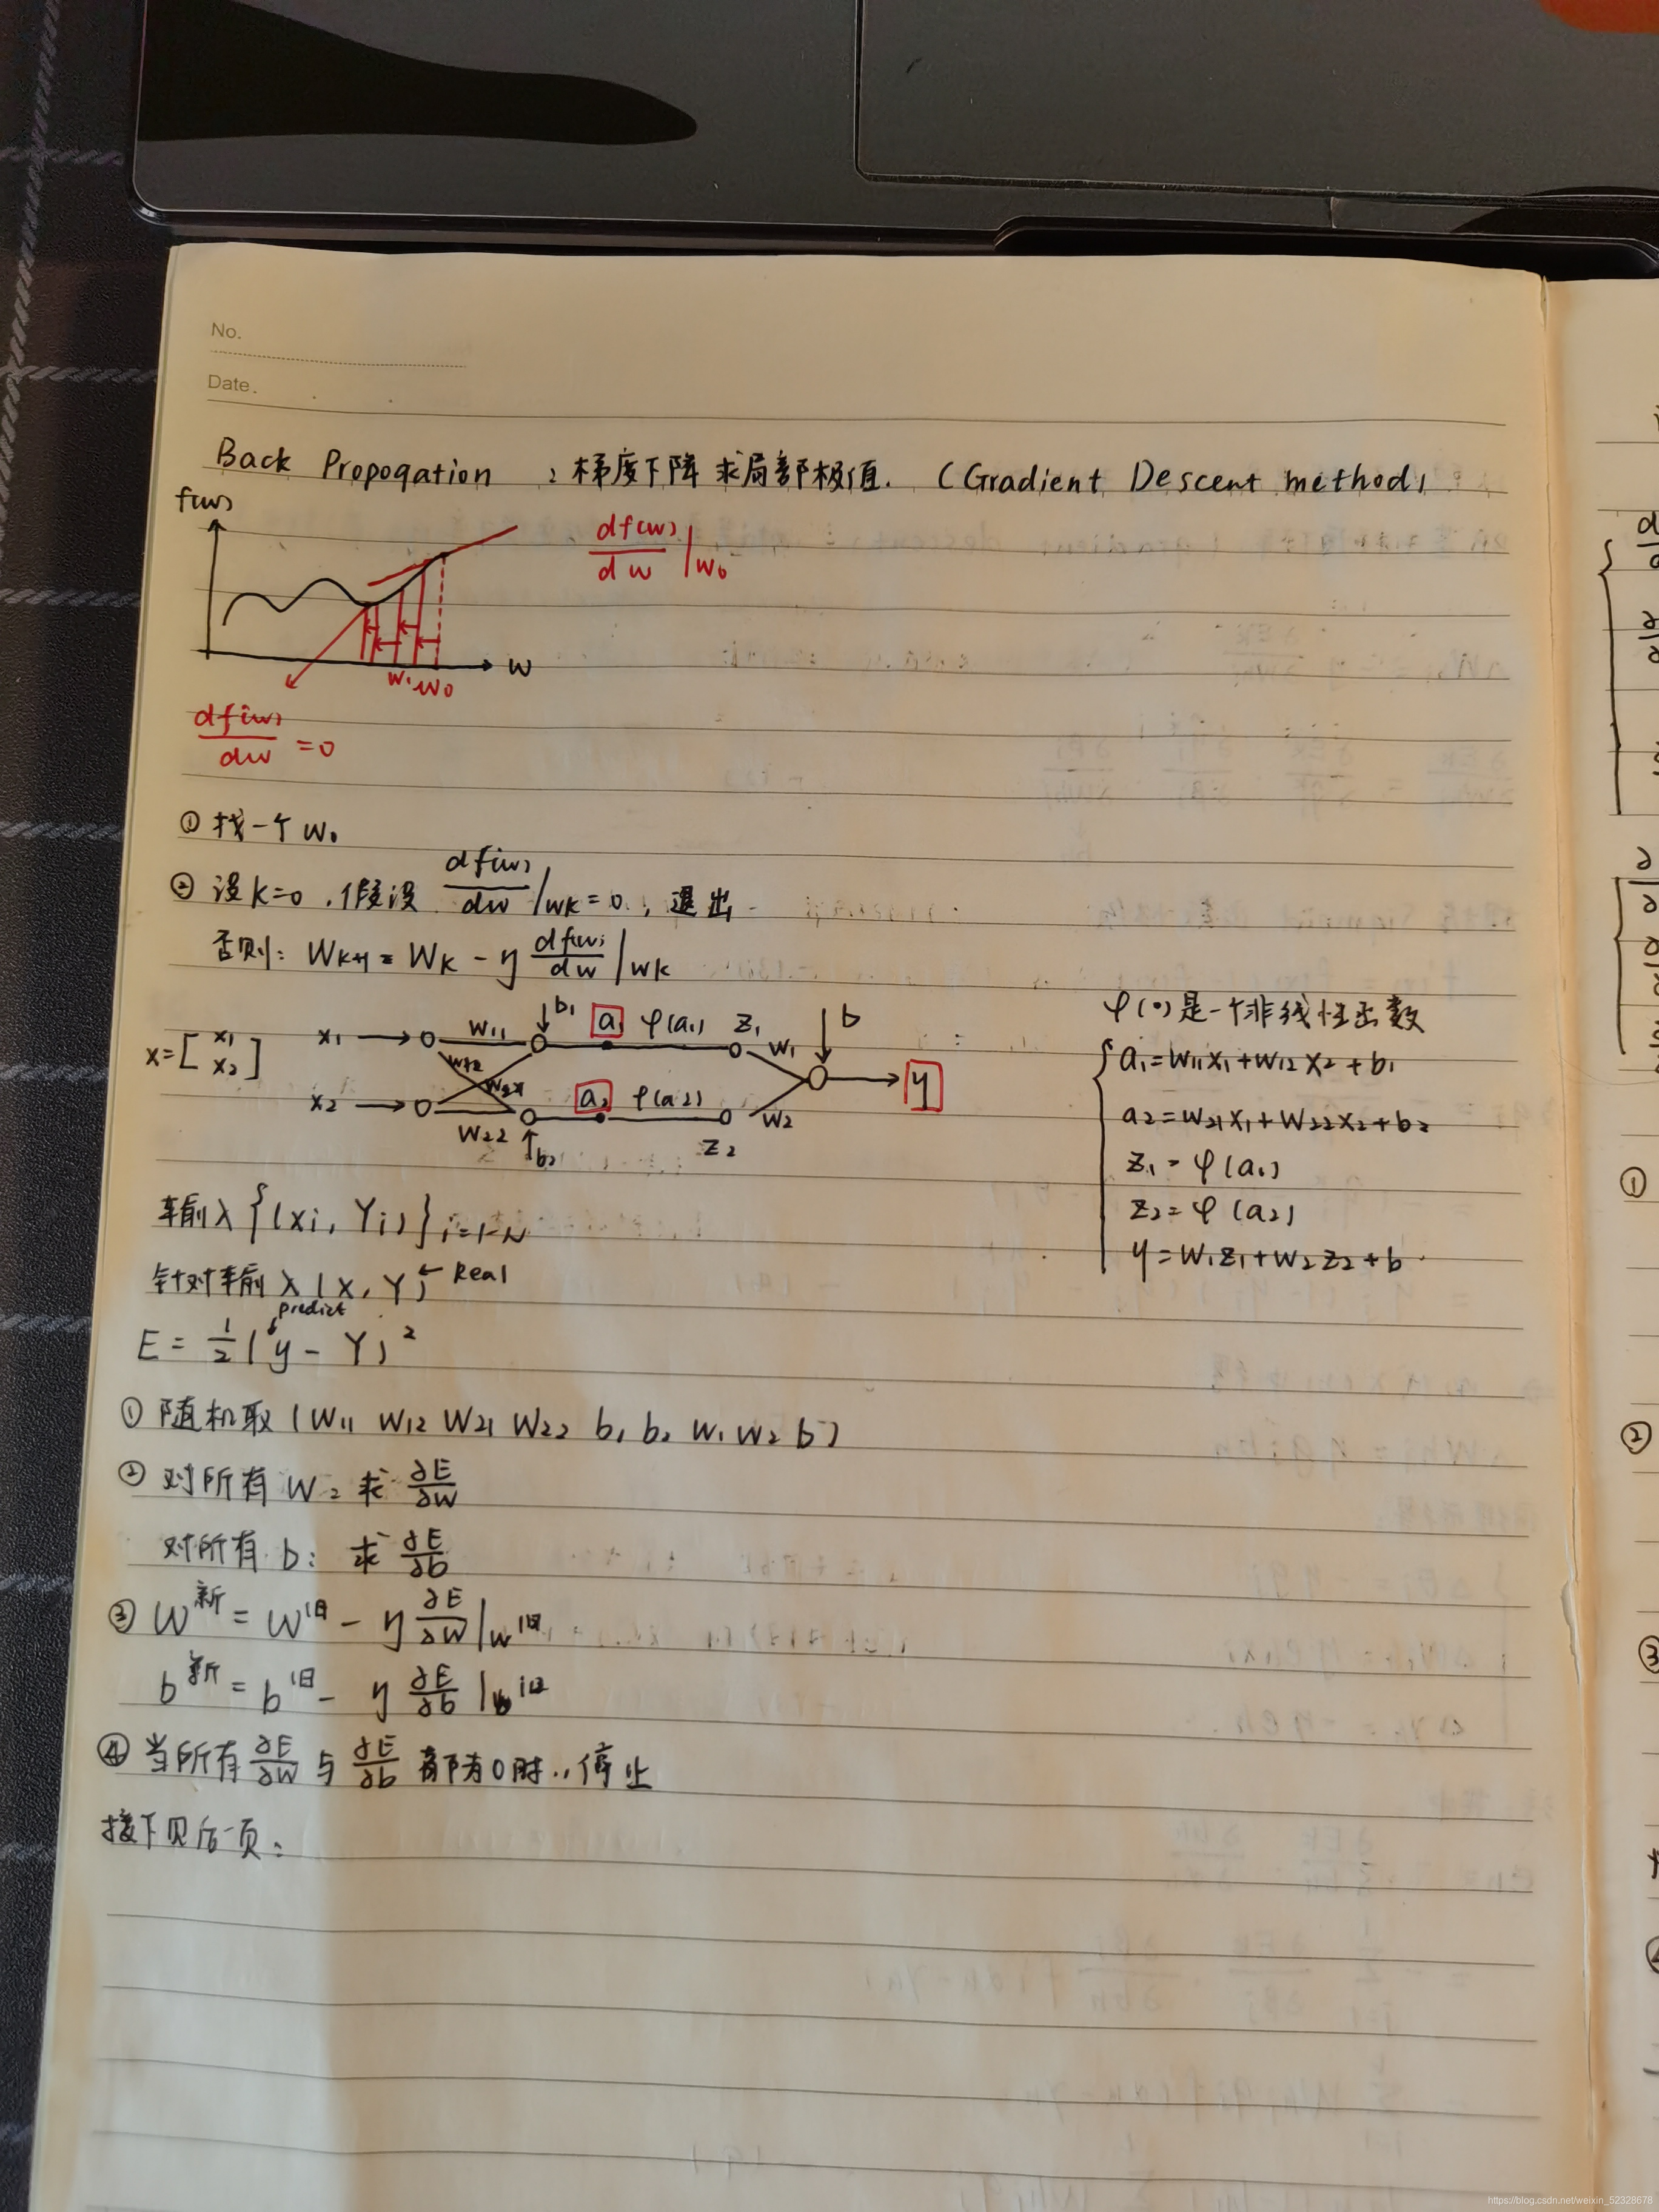 No.
Date.
Back Propogation : 梯度下降求局部极值. (Gradient Descent method)
f(w)
df(w)/dw |w₀
w
w₁ w₀
df(w)/dw = 0
① 找一个 w₀
② 设 k=0 . 假设 df(w)/dw |wk = 0 , 退出
否则: Wk+1 = Wk - η df(w)/dw | wk
x = [x₁ x₂]
x₁ w₁₁ b₁ a₁ φ(a₁) z₁ w₁ b
w₁₂ w₂₁ y
x₂ w₂₂ b₂ a₂ φ(a₂) z₂ w₂
φ(0) 是一个非线性函数
a₁ = w₁₁x₁ + w₁₂x₂ + b₁
a₂ = w₂₁x₁ + w₂₂x₂ + b₂
z₁ = φ(a₁)
z₂ = φ(a₂)
y = w₁z₁ + w₂z₂ + b
输入 {(xi, Yi)} i=1~N
针对输入 (x, Y) ← Real
predict
E = ½(y - Y)²
① 随机取 (w₁₁ w₁₂ w₂₁ w₂₂ b₁ b₂ w₁ w₂ b)
② 对所有 w : 求 ∂E/∂w
对所有 b : 求 ∂E/∂b
③ w新 = w旧 - η ∂E/∂w | w旧
b新 = b旧 - η ∂E/∂b | b旧
④ 当所有 ∂E/∂w 与 ∂E/∂b 都为0时 , 停止
接下见后一页 :
①
②
③
https://blog.csdn.net/weixin_52328678